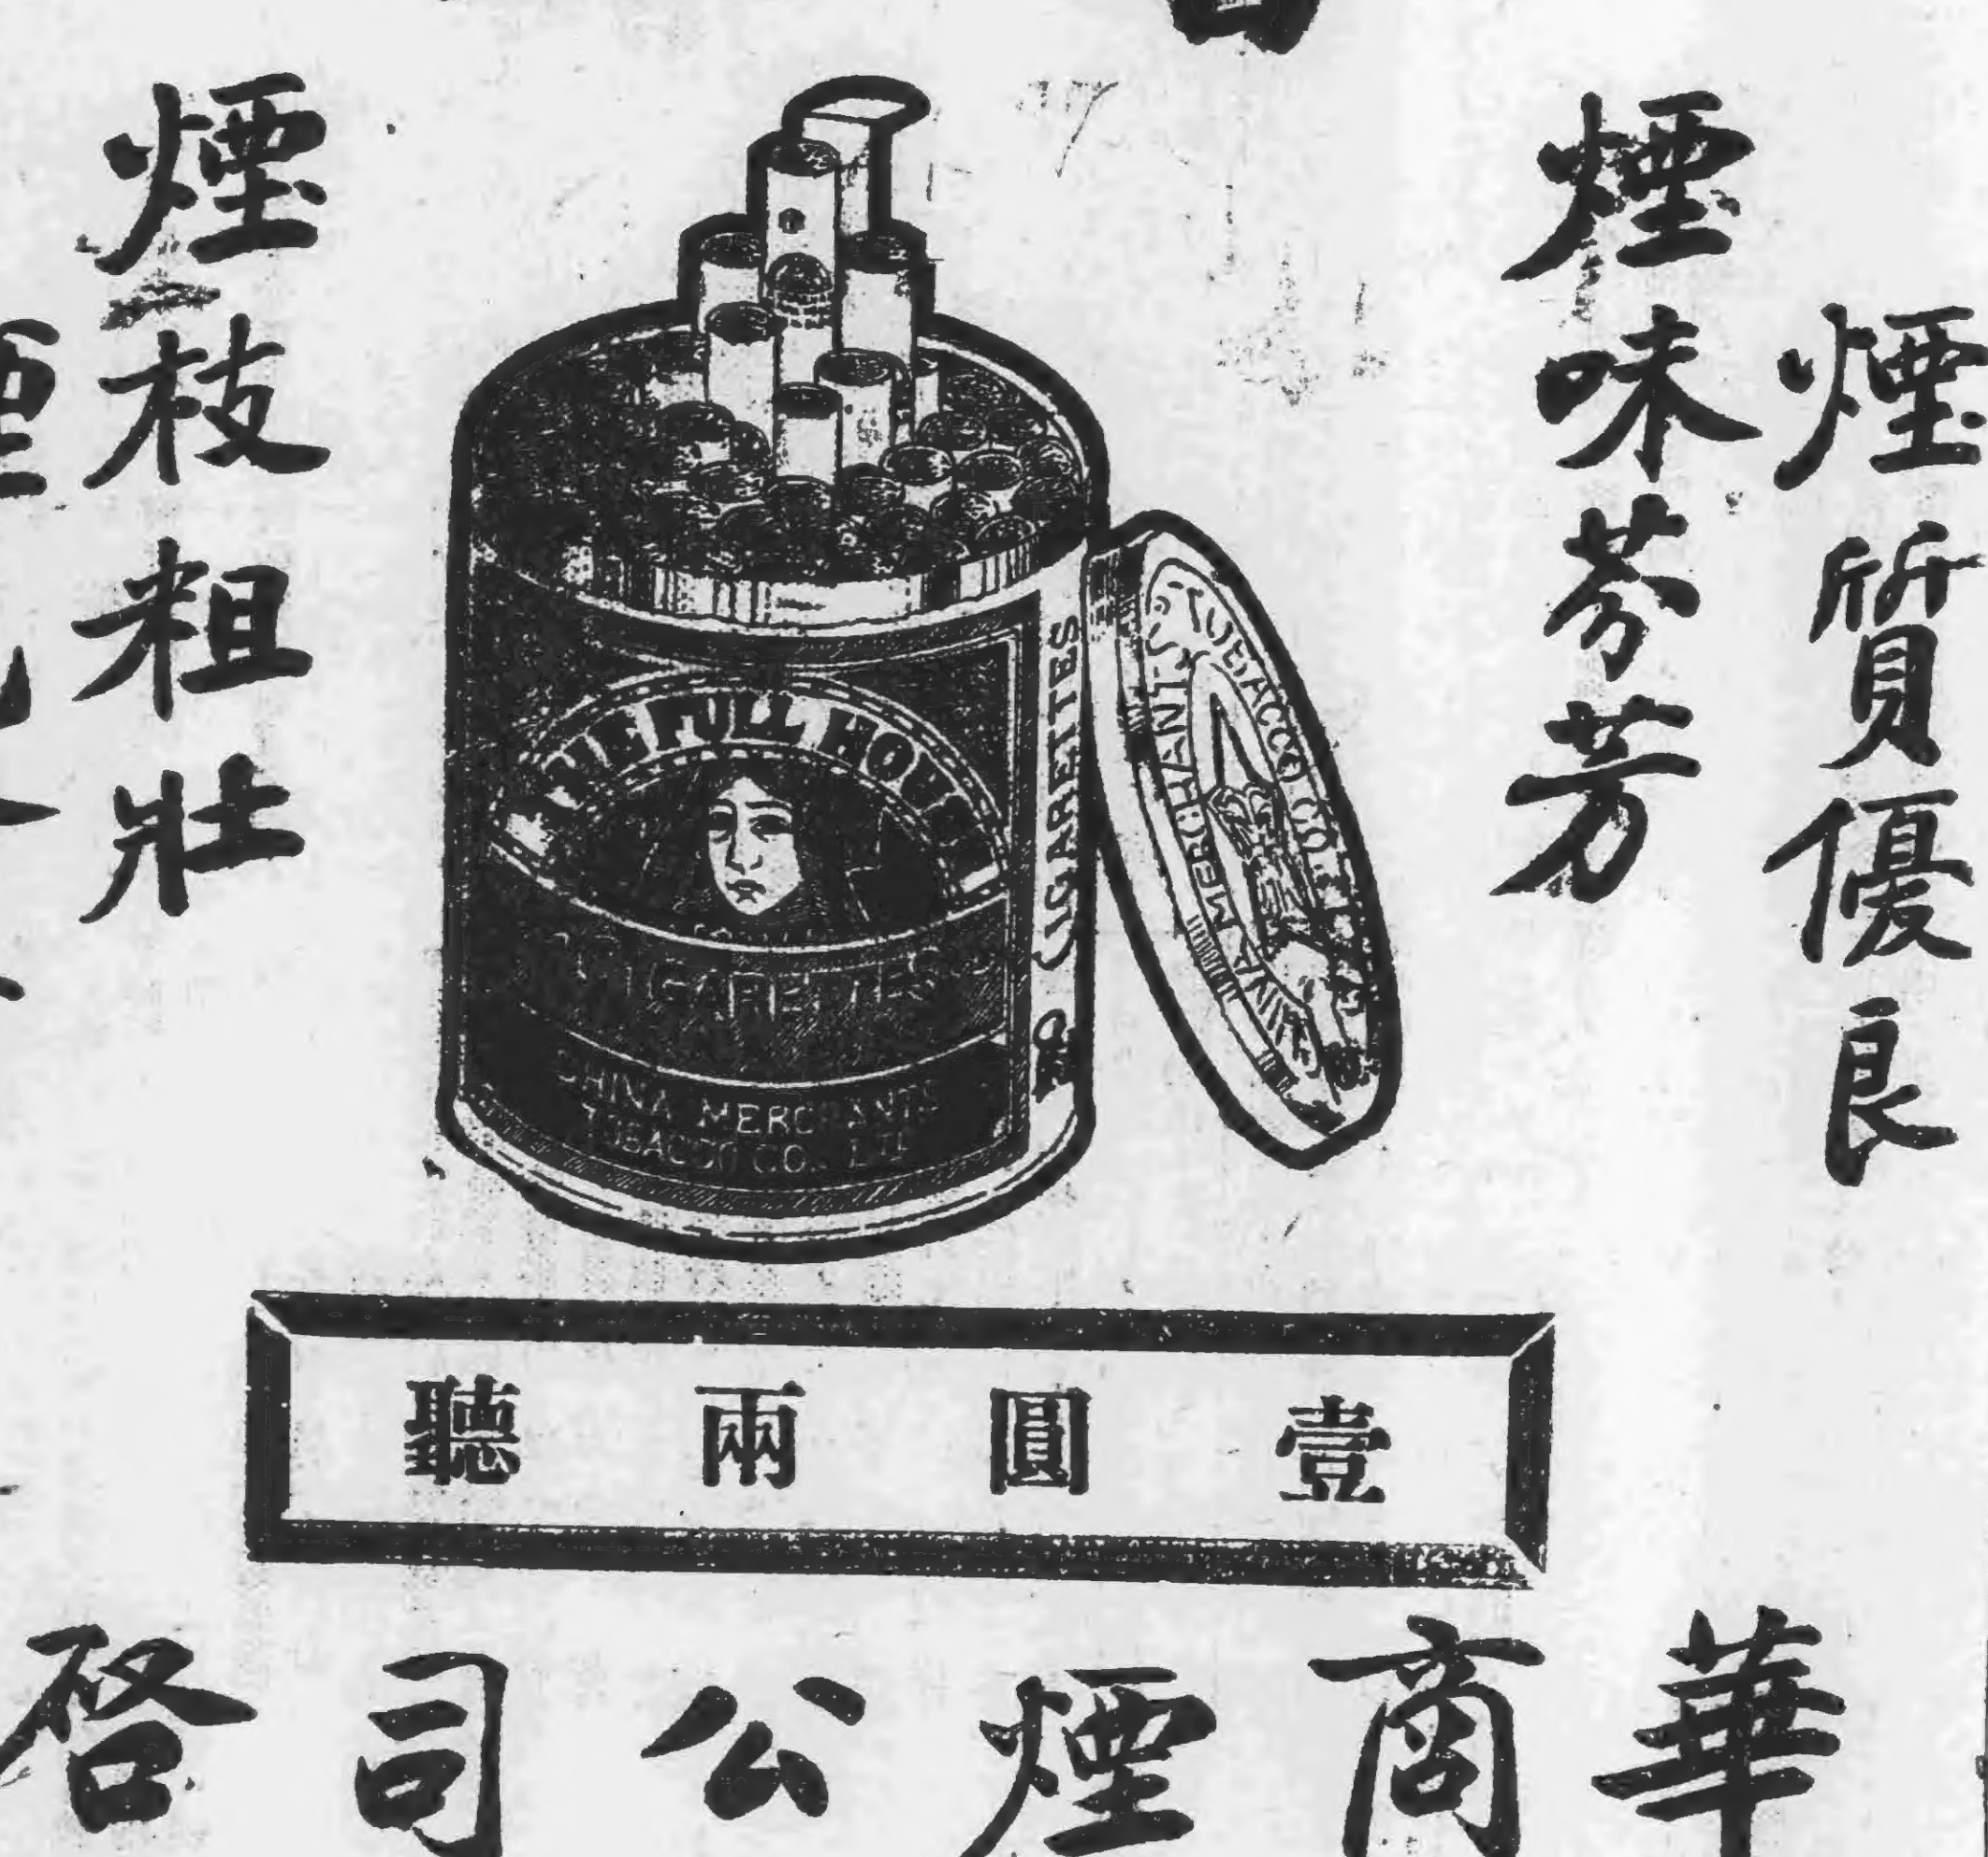 煙質優良
煙味芬芳
THE FULL HOUSE
CIGARETTES
CHINA MERCHANTS
TOBACCO CO. LTD
CIGARETTES
CHINA MERCHANTS TOBACCO CO. LTD
煙枝粗壯
壹圓兩聽
華商煙公司啓